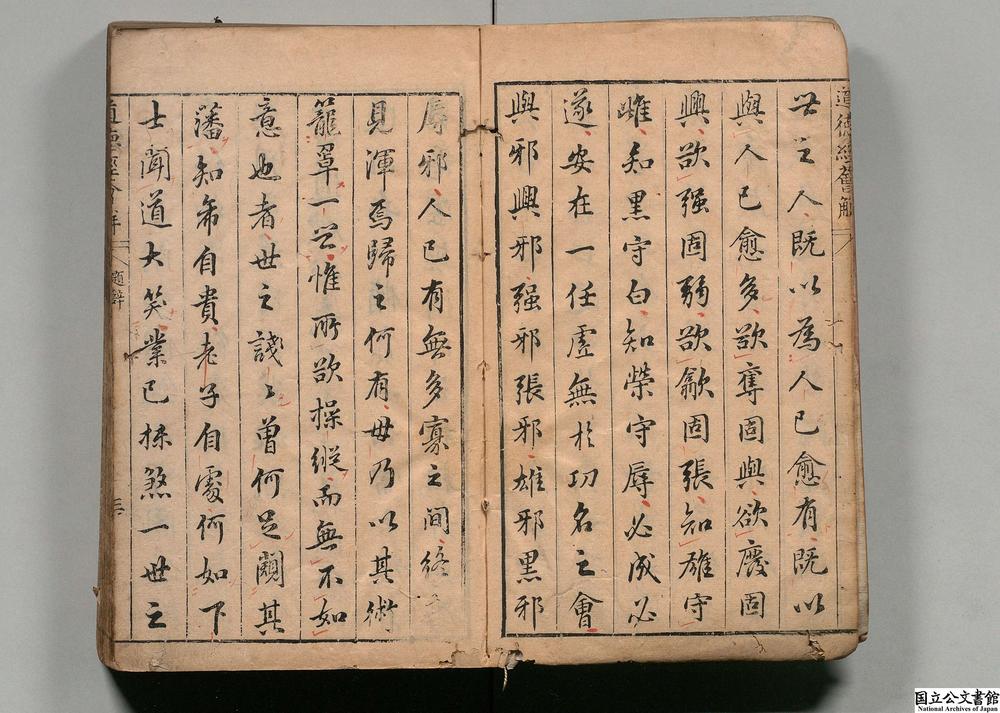 道德經薈解
世之人既以為人已愈有既以
與人已愈多欲奪固與欲廢固
興欲强固弱欲歙固張知雄守
雌知黑守白知榮守辱必成必
遂安在一任虛無於功名之會
與邪興邪强邪張邪雄邪黑邪
辱邪人已有無多寡之間終
見渾焉歸之何有毋乃以其術
籠罩一世惟所欲操縱而無不如
意也者世之諓諓曾何足闚其
藩知希自貴老子自處何如下
士聞道大笑業已抹煞一世之
道德經薈解
題辭
国立公文書館
National Archives of Japan